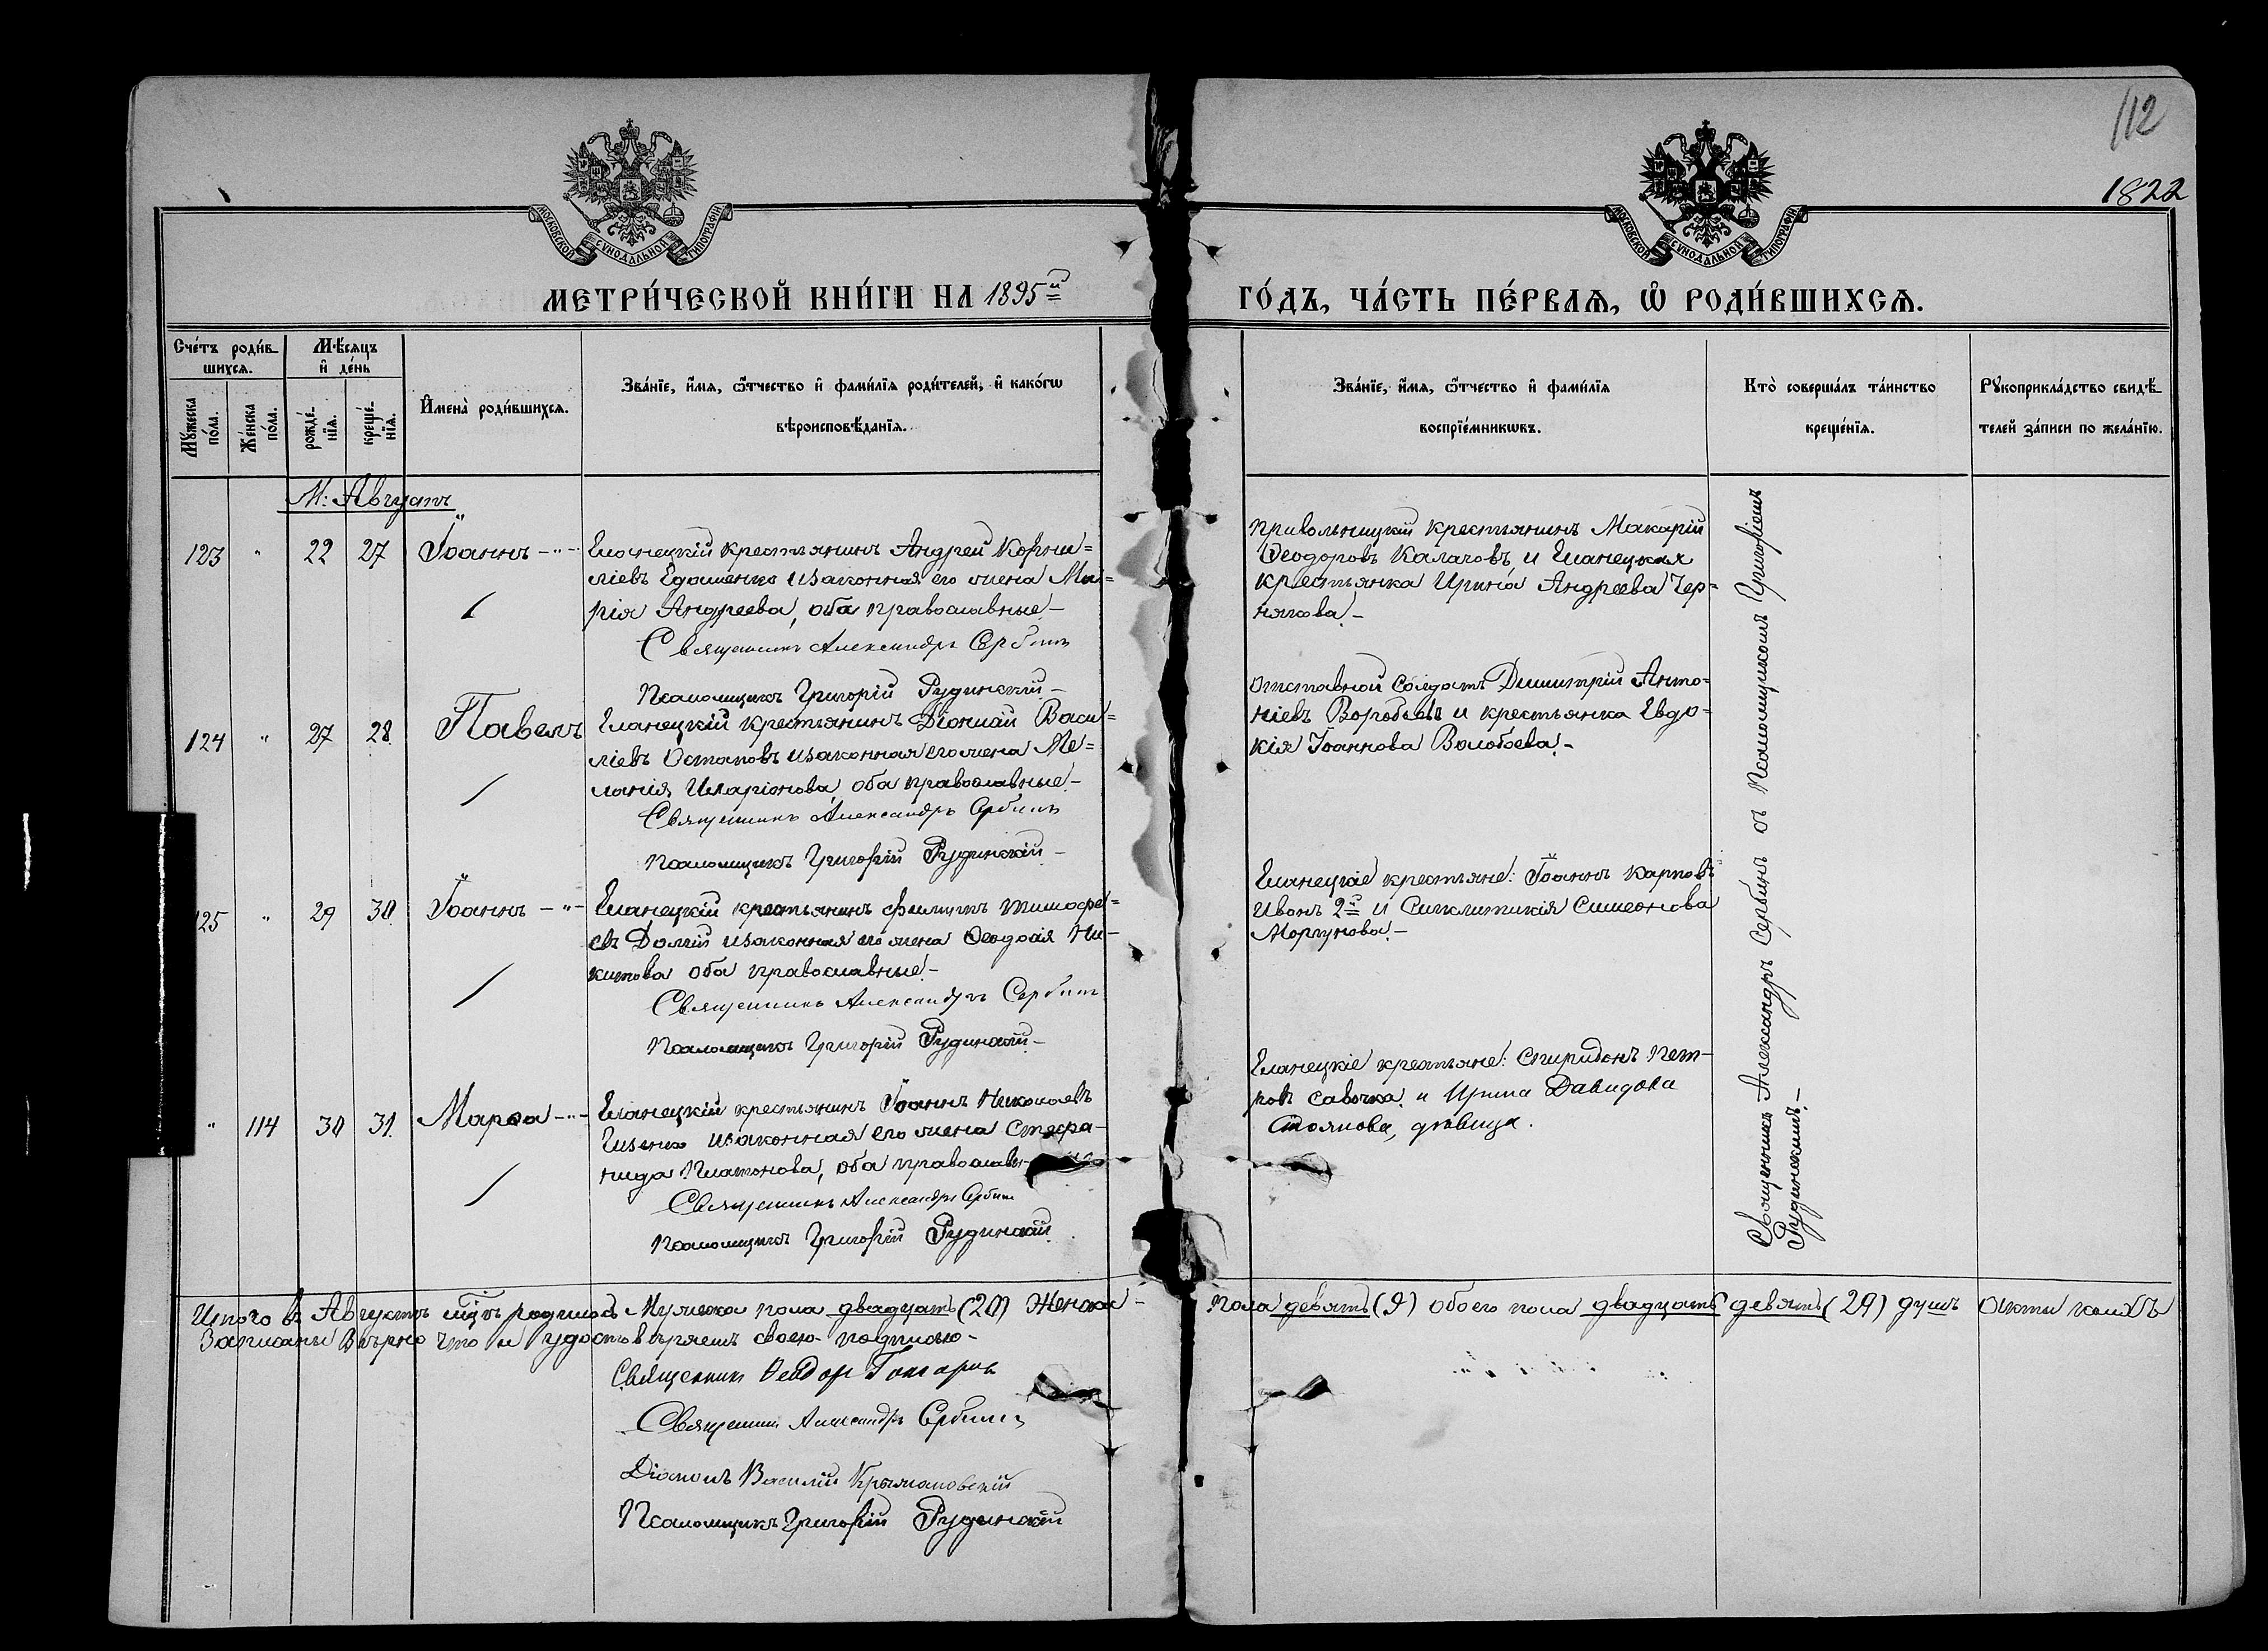 112
1822
МОСКОВСКОЙ СУНОДАЛЬНОЙ ТИПОГРАФІИ
МОСКОВСКОЙ СУНОДАЛЬНОЙ ТИПОГРАФІИ
МЕТРИ́ЧЕСКОЙ КНИ́ГИ НА 1895й
ГО́ДЪ, ЧА́СТЬ ПЕ́РВАѦ, Ѡ҆ РОДИ́ВШИХСѦ.
Сче́тъ роди́в-
шихсѧ.
Мꙋ́жеска по́ла.
Же́нска по́ла.
Мѣ́сѧцъ
и҆ де́нь
рожде́-
нїѧ.
креще́-
нїѧ.
И҆мена̀ роди́вшихсѧ.
Зва́нїе, и҆́мѧ, ѻ҆́тчество и҆ фами́лїѧ роди́телей, и҆ како́гѡ
вѣроисповѣ́данїѧ.
Зва́нїе, и҆́мѧ, ѻ҆́тчество и҆ фами́лїѧ
воспрїе́мникѡвъ.
Кто̀ соверша́лъ та́инство
креще́нїѧ.
Рꙋкоприкла́дство свидѣ́-
телей за́писи по жела́нїю.
М: Августъ
123 " 22 27 Іоаннъ -"-
Еланецкій крестьянинъ Андрей Корни=
ліевъ Едашенко и законная его жена Ма=
рія Андреева, оба православные.-
Священникъ Александръ Сербинъ
Псаломщикъ Григорій Рудинскій.-
Привольницкій крестьянинъ Макарій
Ѳеодоровъ Калачовъ, и Еланецкая
крестьянка Ирина Андреева Чер-
някова.-
124 " 27 28. Павелъ
Еланецкій крестьянинъ Діонисій Васи=
ліевъ Остаповъ и законная его жена Ме=
ланія Иларіонова, оба православные.-
Священникъ Александръ Сербинъ
Псаломщикъ Григорій Рудинскій.-
Отставной Солдатъ Димитрій Анто=
ніевъ Воробьевъ и крестьянка Евдо-
кія Іоаннова Волобоева.-
125 " 29 30 Іоаннъ -"-
Еланецкій крестьянинъ Филиппъ Тимофе=
евъ Долгій и законная его жена Ѳеодосія Ни-
китова оба православные.-
Священникъ Александръ Сербинъ
Псаломщикъ Григорій Рудинскій.-
Еланецкіе крестьяне: Іоаннъ Карповъ
Ивонъ 2й и Синклитикія Симеонова
Моргунова.-
" 114 30 31. Марѳа -"-
Еланецкій крестьянинъ Іоаннъ Николаевъ
и законная его жена Стефа-
нида Платонова, оба православ
Священникъ Александръ Сербинъ
Псаломщикъ Григорій Рудинскій.
Еланецкіе крестьяне: Спиридонъ Пет-
ровъ Савочка, и Ирина Давидова
Стоянова, дѣвица.
Священникъ Александръ Сербинъ съ Псаломщикомъ Григоріемъ
Рудинскимъ.-
Итого въ Августѣ мцѣ родилось Мужеска пола двадцать (20) Женска-
пола девять (9) обоего пола двадцать девять (29) душъ Акты коихъ
Записаны Вѣрно что и удостовѣряемъ своею подписью-
Священникъ Ѳеодоръ Гончаровъ
Священникъ Александръ Сербинъ
Діаконъ Василій Крыжановскій
Псаломщикъ Григорій Рудинскій